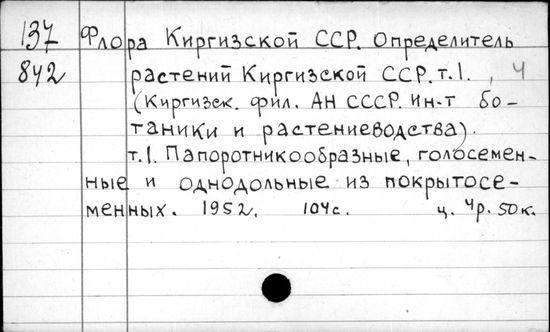 137 Флора Киргизской ССР. Определитель
842 растений Киргизской ССР. т.1., 4
(Киргизск. фил. АН СССР. Ин-т бо-
таники и растениеводства).
т.1. Папоротникообразные, голосемен-
ные и однодольные из покрытосе-
менных. 1952. 104с. ц. 4р. 50к.